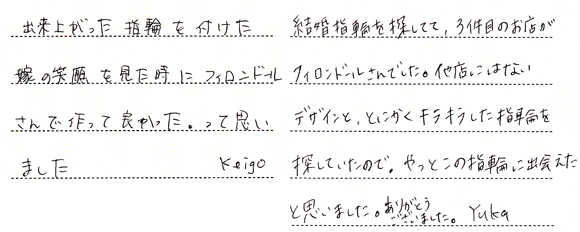 出来上がった 指輪 を 付けた
嫁 の 笑顔 を 見た 時 に フィロンドール
さんで 作って 良かった。って 思い
ました Keigo
結婚指輪を探してて、3件目のお店が
フィロンドールさんでした。他店にはない
デザインと、とにかくキラキラした指輪を
探していたので、やっとこの指輪に出会えた
と思いました。ありがとうございました。 Yuka